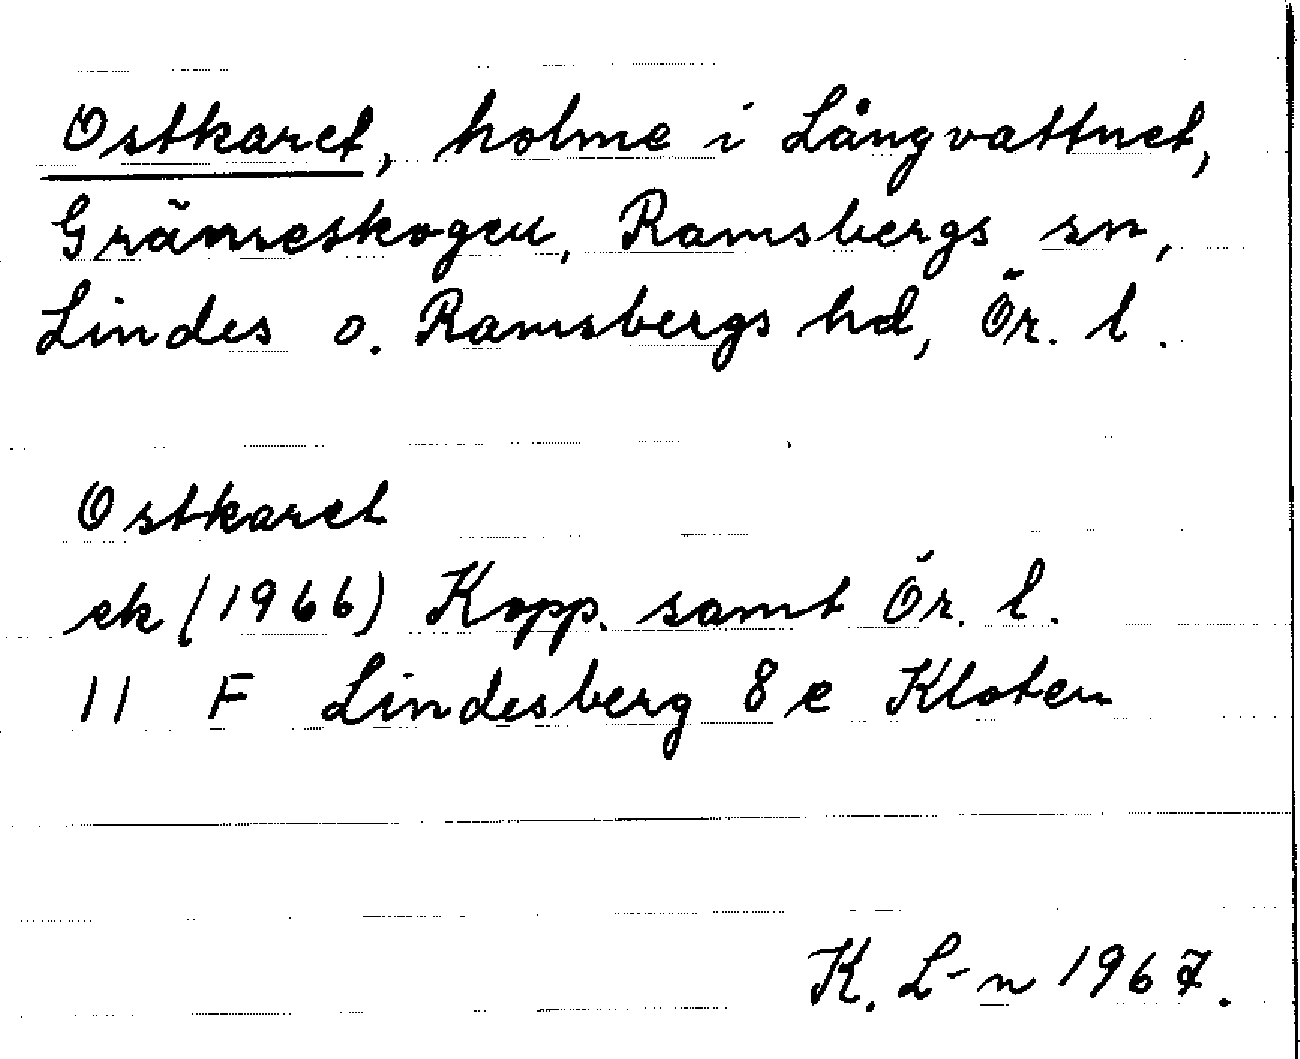 Ostkaret, holme i Långvattnet,
Gränseskogen, Ramsbergs sn,
Lindes o. Ramsbergs hd, Ör. l.
Ostkaret
ek (1966) Kopp. samt Ör. l.
11 F Lindesberg 8 e Kloten
K. L-n 1967.